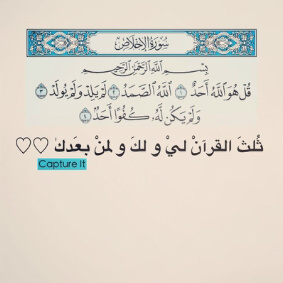 سورة الإخلاص
بِسْمِ اللَّهِ الرَّحْمَٰنِ الرَّحِيمِ
قُلْ هُوَ اللَّهُ أَحَدٌ ١ اللَّهُ الصَّمَدُ ٢ لَمْ يَلِدْ وَلَمْ يُولَدْ ٣
وَلَمْ يَكُن لَّهُ كُفُوًا أَحَدٌ ٤
ثُلثَ القرآنْ ليْ و لكَ و لمنْ بعدَك ♡♡
Capture It